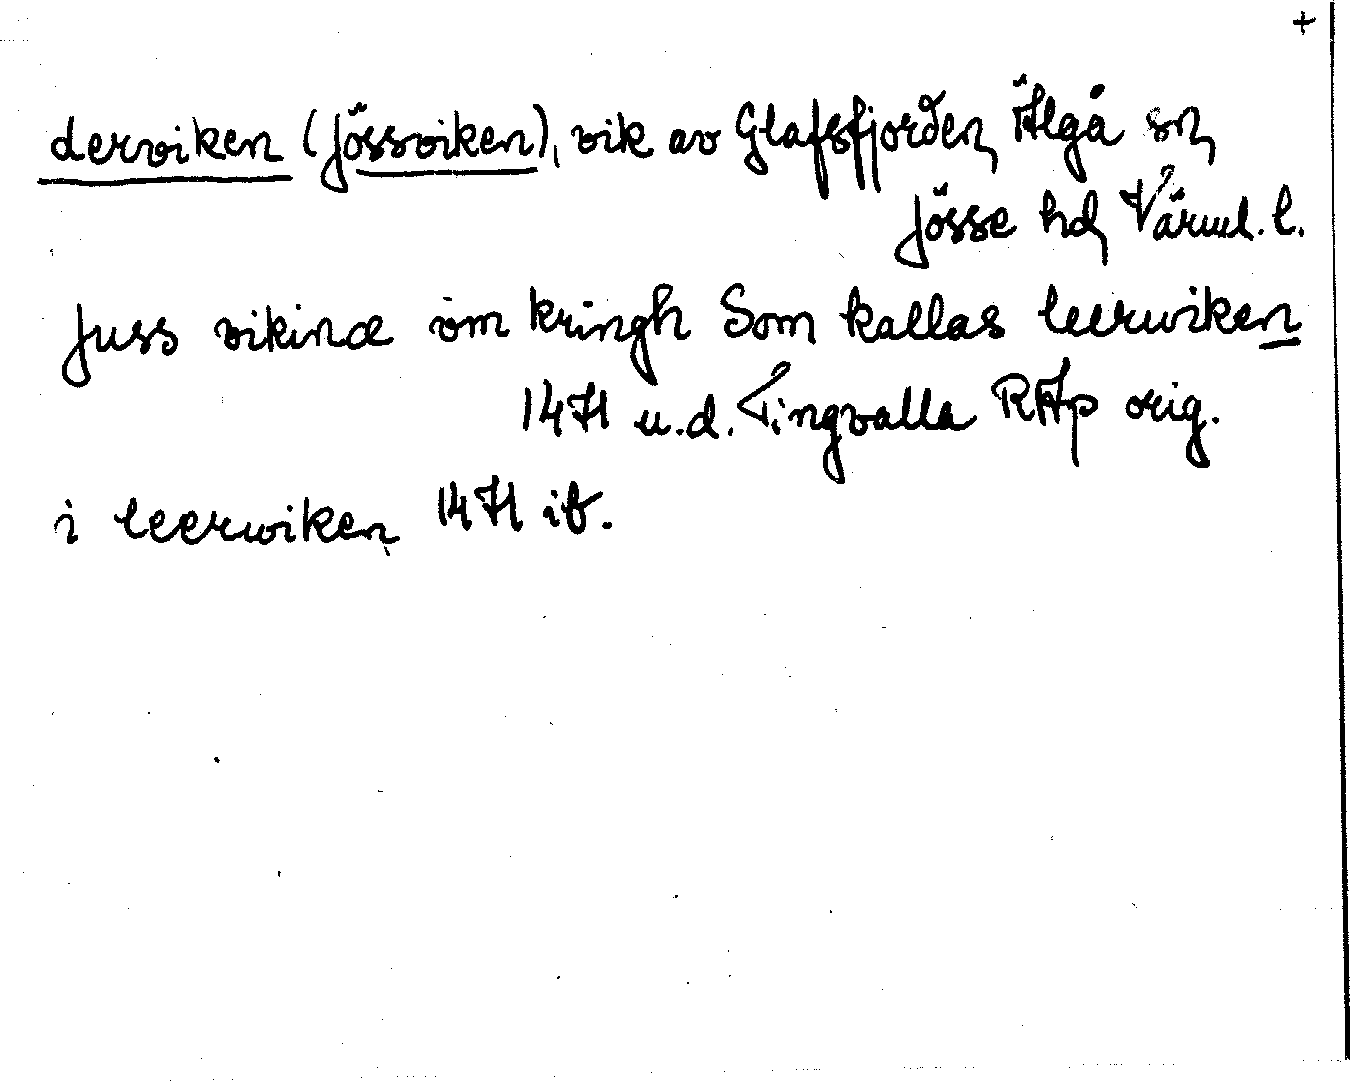 +
derviken (Jössviken), vik av Glafsfjorden, Älgå sn,
Jösse hd, Värml. l.
Juss vikinæ vm kringh Som kallas leerwiken
1471 u.d. Tingvalla RAp orig.
i leerwiken 1471 ib.